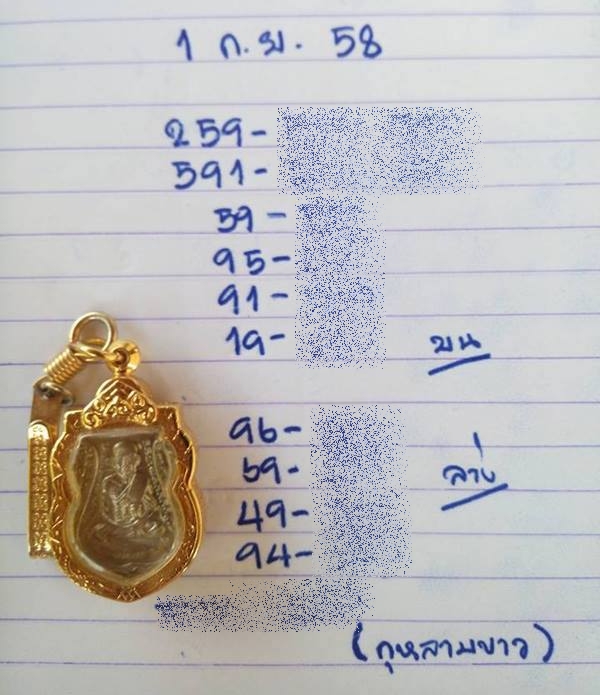 1 ก.ย. 58
259-
591-
59-
95-
91-
19-
บน
96-
69-
ล่าง
49-
94-
(กุหลาบขาว)